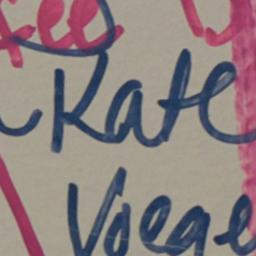 Kate
Voege